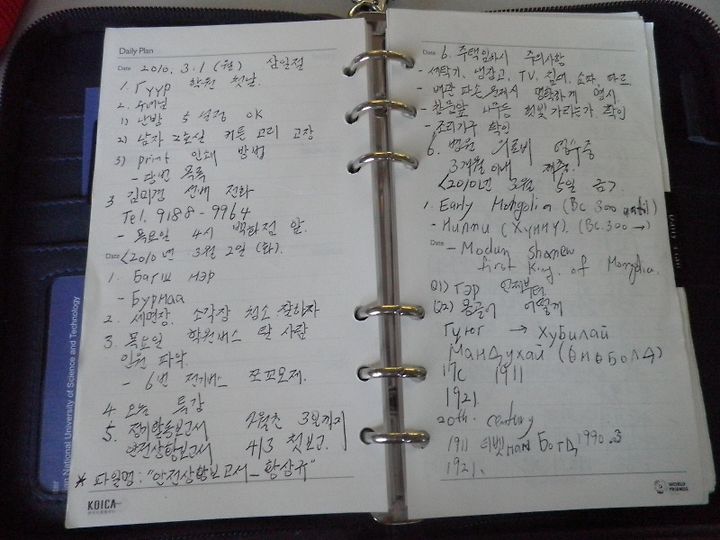 Daily Plan
Date 2010. 3. 1 (월) 삼일절
1. Гуур 학원 첫날
2. 수버닝
1) 난방 5 설정 OK
2) 남자 2호실 커튼 고리 고장
3) print 인쇄 방법
- 당번 목록
3 김미경 선배 전화
Tel. 9188 - 9964
- 목요일 4시 백화점 앞.
Date <2010년 3월 2일 (화).
1. Багш нэр
- Бурмаа
2. 세면장. 소각장 청소 잘하자
3. 목요일 학원버스 탈 사람
인원 파악.
- 6번 전기버스 쪼꼬모제.
4 오늘 특강
5. 정기활동보고서 3일까지
안전상황보고서 4/3 첫보고.
* 파일명: "안전상황보고서_황삼규"
KOICA
an National University of Science and Technology
Date 6. 주택임차시 주의사항
- 세탁기, 냉장고, TV, 침대, 소파, 카드.
- 배관 파손 명확하게 명시.
- 창문앞 나무등 햇빛 가리는가 확인
- 조리기구 확인
6. 병원 의료비 영수증
3개월이내 제출.
<2010년 3월 5일 금>
1. Early Mongolia (BC 300 until)
- Hunnu (Хүннү). (BC. 300 →)
Date
- Modun Shanew
first King of Mongolia.
Q1) Гэр 언제부터.
Q2) 몽골어 어떻게
Гүюг → Хубилай
Мандухай (Өнөболд)
17C 1911
1921.
20th century
1911 티벳 нам Богд, 1990.3
1921.
WORLD FRIENDS